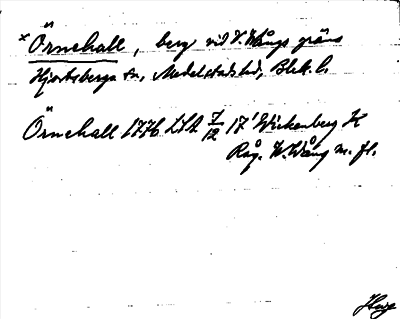 * Örnehall, berg vid V. Vångs gräns
Hjortsberga sn, Medelstads hd, Blek. l.
Örnehall 1776 LSA 7/12 17' Wickenberg K
Råg. W. Wång m. fl.